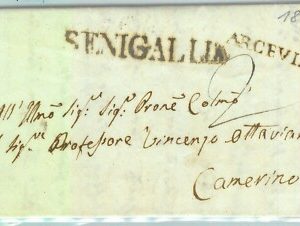 18
SENIGALLIA
ARCEVIA
All' Illmo Sigr Sigr Prone Colmo
Il Sigr Professore Vincenzo Ottaviani
Camerino